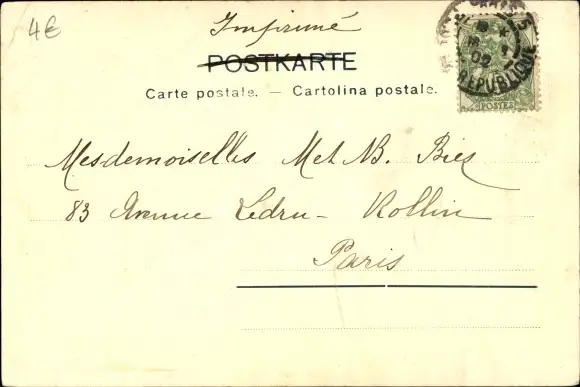 4€
Imprimé
POSTKARTE
Carte postale. — Cartolina postale.
Mesdemoiselles M et B. Bies
83 Avenue Ledru-Rollin
Paris
RÉPUBLIQUE
POSTES